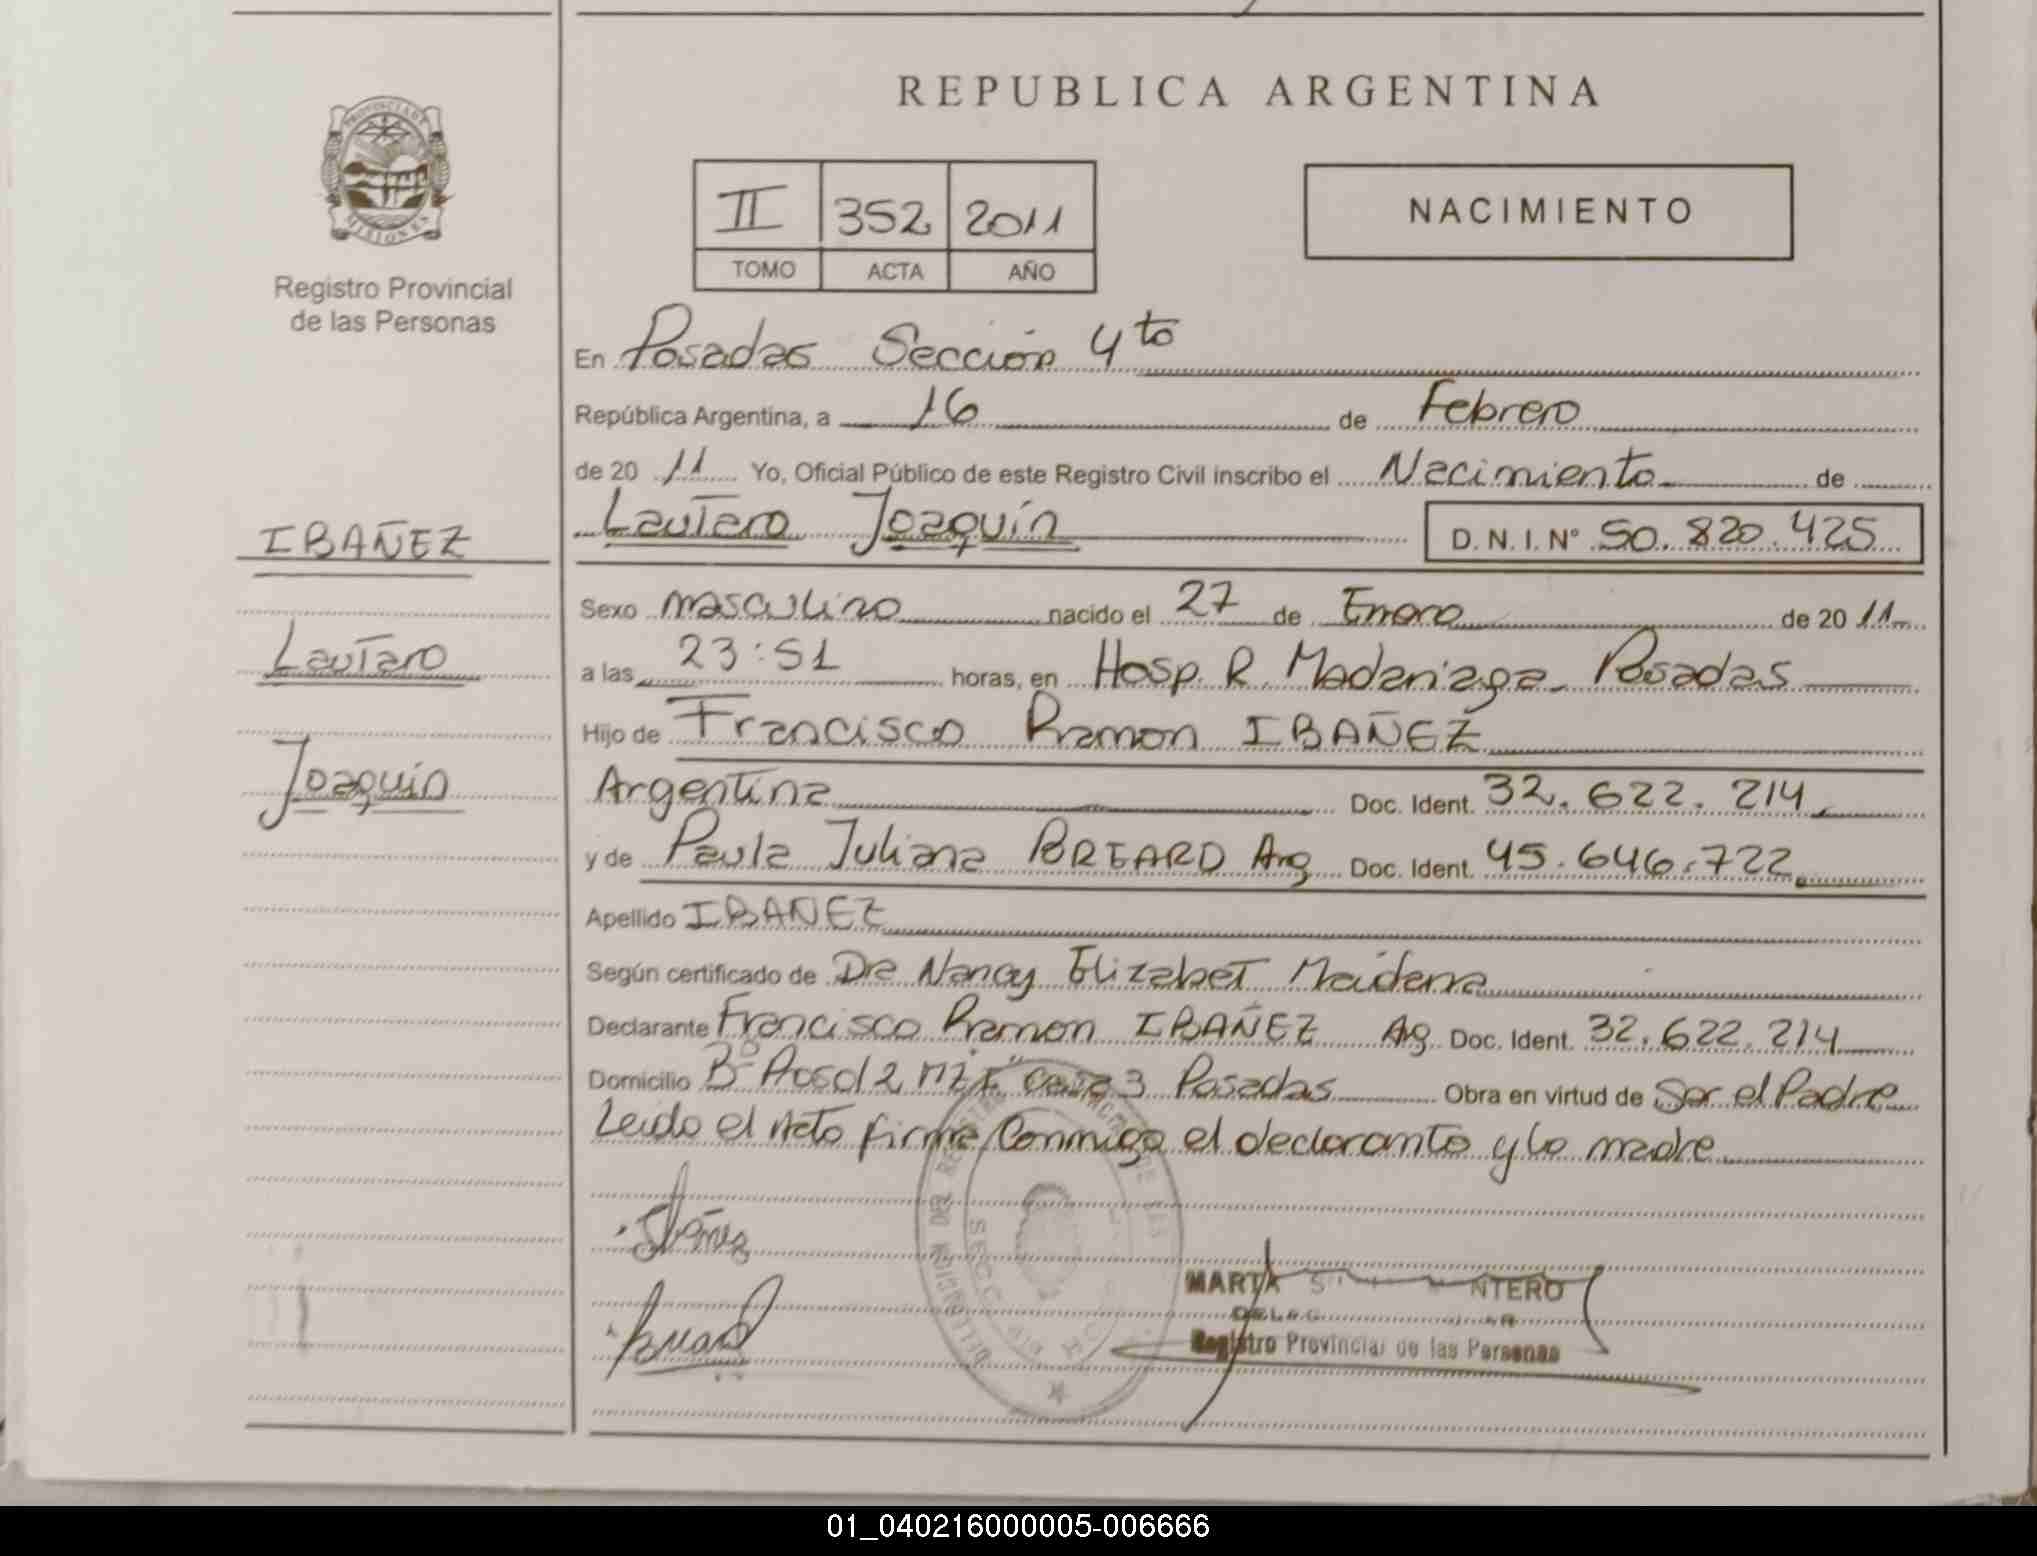 REPUBLICA ARGENTINA
PROVINCIA DE MISIONES
Registro Provincial
de las Personas
II 352 2011
TOMO ACTA AÑO
NACIMIENTO
En Posadas Sección 4to
República Argentina, a 16 de Febrero
de 20 11 Yo, Oficial Público de este Registro Civil inscribo el Nacimiento de
Lautaro Joaquín D.N.I. N° 50.820.425
IBAÑEZ
Lautaro
Joaquín
Sexo masculino nacido el 27 de Enero de 20 11
a las 23:51 horas, en Hosp. R. Madariaga Posadas
Hijo de Francisco Ramon IBAÑEZ
Argentina Doc. Ident. 32.622.214
y de Paula Juliana BREARD Arg Doc. Ident. 45.646.722
Apellido IBAÑEZ
Según certificado de Dra Nancy Elizabet Maidana
Declarante Francisco Ramon IBAÑEZ Arg Doc. Ident. 32.622.214
Domicilio B° Casa 3 Posadas Obra en virtud de Ser el Padre
Leido el Acto firma Conmigo el declarante y la madre
Ibañez
Breard
MARTA NTERO
Registro Provincial de las Personas
01_040216000005-006666